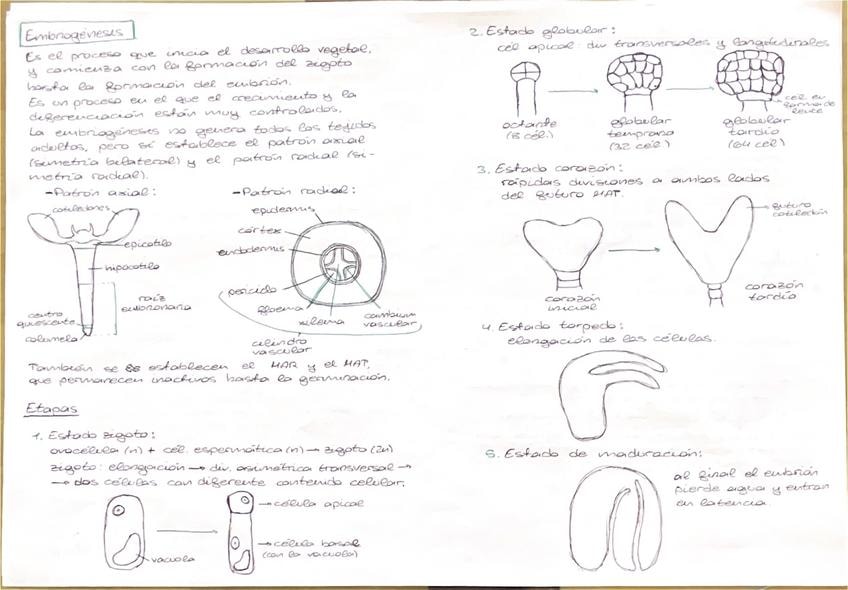 Embriogénesis
Es el proceso que inicia el desarrollo vegetal,
y comienza con la formación del zigoto
hasta la formación del embrión.
Es un proceso en el que el crecimiento y la
diferenciación están muy controlados.
La embriogénesis no genera todos los tejidos
adultos, pero sí establece el patrón axial
(simetría bilateral) y el patrón radial (si-
metría radial).
-Patrón axial:
cotiledones
epicotilo
hipocotilo
raíz
embrionaria
centro
quiescente
columela
-Patrón radial:
epidermis
córtex
endodermis
periciclo
floema
xilema
cambium
vascular
cilindro
vascular
También se establecen el MAR y el MAT,
que permanecen inactivos hasta la germinación.
Etapas
1. Estado zigoto:
ovocélula (n) + cél. espermática (n) → zigoto (2n)
zigoto: elongación → div. asimétrica transversal →
→ dos células con diferente contenido celular.
vacuola
→ célula apical
→ célula basal
(con la vacuola)
2. Estado globular:
cél apical: div transversales y longitudinales
octante
(8 cél.)
globular
temprana
(32 cél)
globular
tardío
(64 cel)
cél. en
forma de
lente
3. Estado corazón:
rápidas divisiones a ambos lados
del futuro MAT.
corazón
inicial
futuro
cotiledón
corazón
tardío
4. Estado torpedo:
elongación de las células.
5. Estado de maduración:
al final el embrión
pierde agua y entran
en latencia.